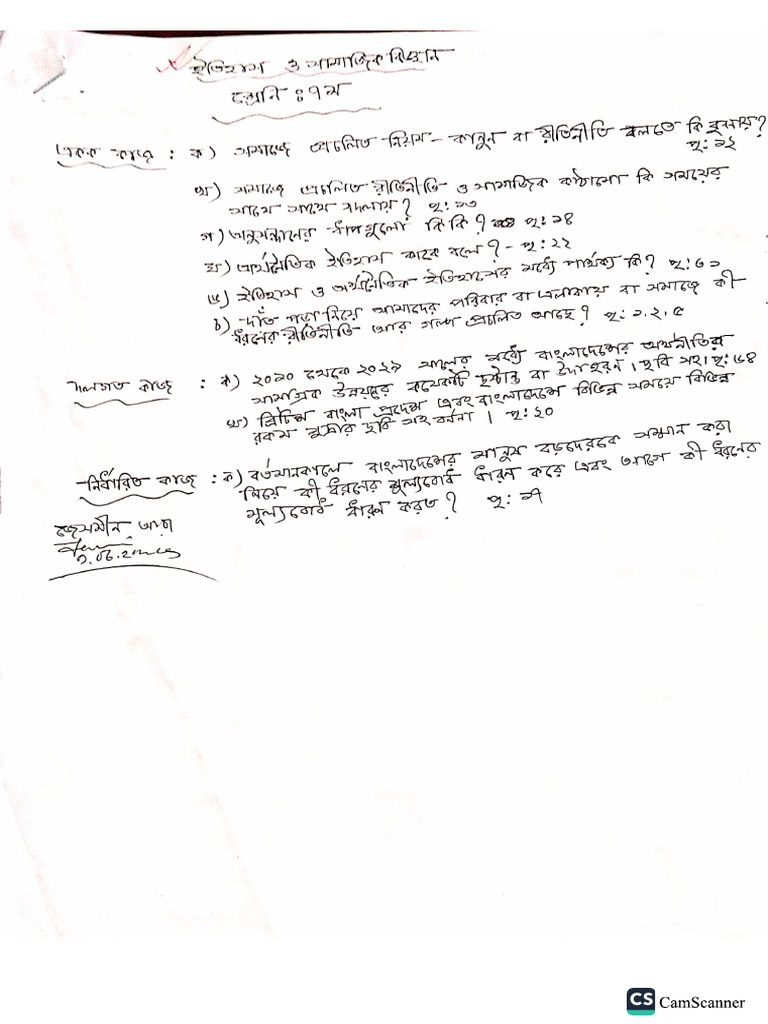 ইতিহাস ও সামাজিক বিজ্ঞান
শ্রেনি : ৭ম
একক কাজ : ক) সমাজে প্রচলিত নিয়ম-কানুন বা রীতিনীতি বলতে কি বুঝায়?
পৃ: ১২
খ) সমাজে প্রচলিত রীতিনীতি ও সামাজিক কাঠামো কি সময়ের
সাথে সাথে বদলায়? পৃ: ১৩
গ) অনুসন্ধানের ধাপগুলো কি কি? পৃ: ১৪
ঘ) অর্থনৈতিক ইতিহাস কাকে বলে? - পৃ: ২২
ঙ) ইতিহাস ও অর্থনৈতিক ইতিহাসের মধ্যে পার্থক্য কি? পৃ: ৩১
চ) দাঁত পড়া নিয়ে আমাদের পরিবার বা এলাকায় বা সমাজে কী
ধরনের রীতিনীতি আর গল্প প্রচলিত আছে? পৃ: ১, ২, ৫
দলগত কাজ : ক) ২০১০ থেকে ২০২১ সালের মধ্যে বাংলাদেশের অর্থনীতির
সামগ্রিক উন্নয়নের কয়েকটি দৃষ্টান্ত বা উদাহরন। ছবি সহ। পৃ: ৬৪
খ) ব্রিটিশ বাংলা প্রদেশ এবং বাংলাদেশে বিভিন্ন সময়ে বিভিন্ন
রকম মুদ্রার ছবি সহ বর্ননা। পৃ: ২০
নির্ধারিত কাজ : ক) বর্তমানকালে বাংলাদেশের মানুষ বড়দেরকে সম্মান করা
নিয়ে কী ধরনের মূল্যবোধ ধারন করে এবং আগে কী ধরনের
মূল্যবোধ ধারন করত? পৃ: ৯
জেসমীন আরা
CS CamScanner